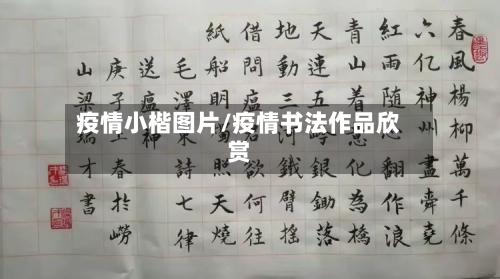 疫情小楷图片/疫情书法作品欣
赏
春風楊柳萬千條
六亿神州盡舜堯
紅雨隨心翻作浪
青山着意化為橋
天連五嶺銀鋤落
地動三河鐵臂搖
借問瘟君欲何往
紙船明燭照天燒
毛澤東詩七律
送瘟神
庚子春於嶗
山梁瑞才書